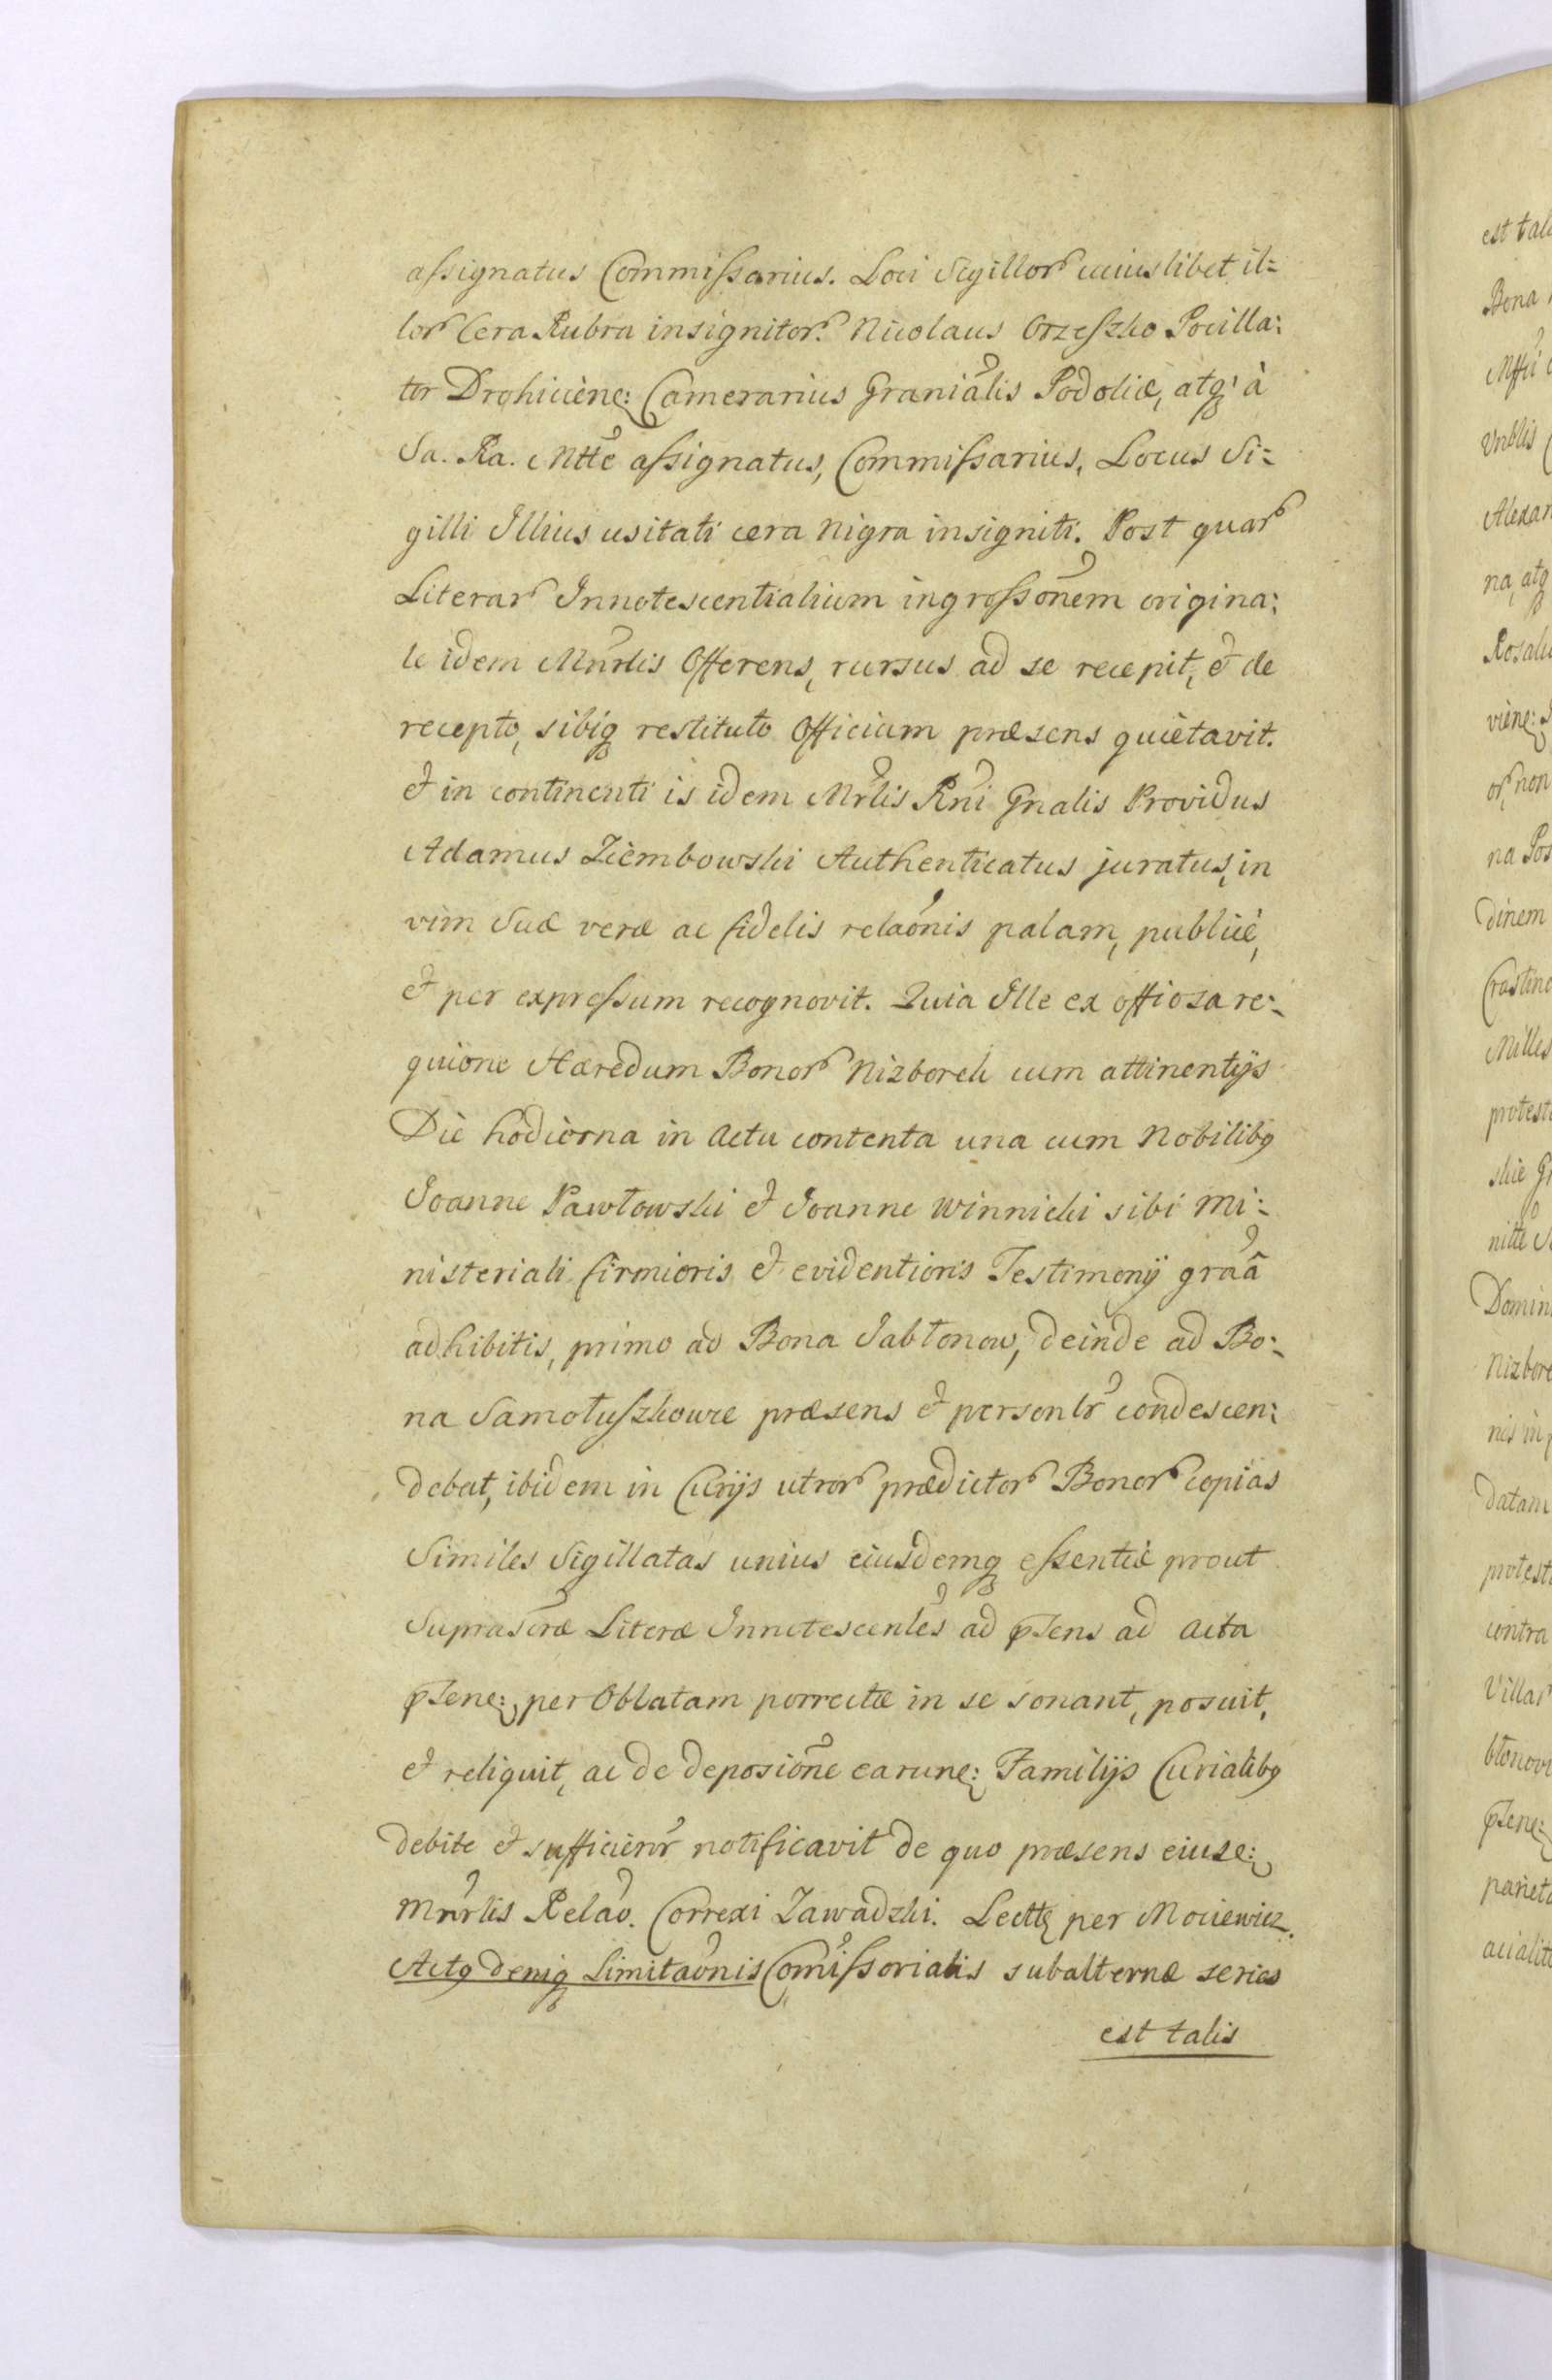 assignatus Commissarius. Loci Sigillor cuiuslibet il=
lor Cera Rubra insignitor. Nicolaus Orzeszko Pocilla:
tor Drohiciens: Camerarius Granialis Podoliæ, atq; à
Sa. Ra. Mtte assignatus, Commissarius, Locus Si=
gilli Illius usitati cera nigra insigniti. Post quar
Literar Innotescentialium ingrossonem origina:
le idem Mnrlis Offerens, rursus ad se recepit, et de
recepto, sibiq restituto Officium præsens quietavit.
et in continenti is idem Mrlis Rni Gnalis Providus
Adamus Ziembowski Authenticatus juratus, in
vim Suæ veræ ac fidelis relaonis palam, publicè,
et per expressum recognovit. Quia Ille ex offiosa re:
quione Hæredum Bonor Nizborek cum attinentijs
Die hodierna in Actu contenta una cum Nobilibq
Joanne Pawłowski et Joanne Winnicki sibi Mi:
nisteriali firmioris et evidentioris Testimonij graâ
adhibitis, primo ad Bona Jabłonow, deinde ad Bo:
na Samołuszkowce præsens et personlr condescen:
debat, ibidem in Curijs utror prædictor Bonor copias
Similes Sigillatas unius eiusdemq essentiæ prout
Suprascræ Literæ Innotescenles ad psens ad Acta
psene: per Oblatam porrectæ in se sonant, posuit,
et reliquit, ac de deposione earune: Familijs Curialibq
debite et sufficienr notificavit de quo præsens eiuse:
Mnrlis Relao. Correxi Zawadzki. Lectt per Mociewicz.
Actq deniq Limitaonis Comissorialis subalternæ series
est talis